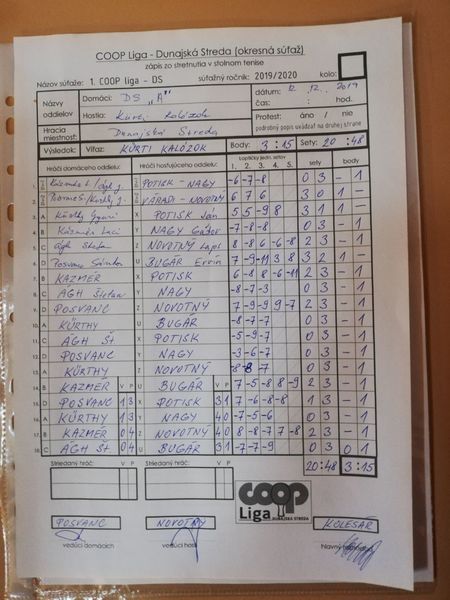 COOP Liga - Dunajská Streda (okresná súťaž)
zápis zo stretnutia v stolnom tenise
Názov súťaže: 1. COOP liga - DS súťažný ročník: 2019/2020 kolo:
Názvy oddielov Domáci: DS "A" dátum: 12. 12. 2019
Hostia: Kurti Kalózok čas: hod.
Hracia miestnosť Dunajská Streda Protest: áno / nie
podrobný popis uvádzať na druhej strane
Výsledok: Víťaz: KÜRTI KALÓZOK Body: 3 : 15 Sety: 20 : 48
Zoznam
Hráči domáceho oddielu Hráči hosťujúceho oddielu Loptičky jedn. setov sety body
1. 2. 3. 4. 5.
1. POTISK - NAGY -6 -7 -8 0 3 - 1
2. VÁRADI - NOVOTNÝ 6 7 6 3 0 1 -
3. A Kürthy Gyuri X POTISK Ján 5 5 -9 8 3 1 1 -
4. B Kázmér Laci Y NAGY Gábor -7 -8 -8 0 3 - 1
5. C Ágh Štefan Z NOVOTNÝ Lajos 8 -8 6 -6 -8 2 3 - 1
6. D Posvanc Sándor U BUGÁR Ervín 7 -9 -11 3 8 3 2 1 -
7. B KAZMÉR X POTISK 6 -8 8 -6 -11 2 3 - 1
8. C ÁGH Štefan Y NAGY -8 -7 -3 0 3 - 1
9. D POSVANC Z NOVOTNÝ 7 -9 -9 9 -7 2 3 - 1
10. A KÜRTHY U BUGÁR -8 -7 -7 0 3 - 1
11. C ÁGH Št X POTISK -5 -9 -7 0 3 - 1
12. D POSVANC Y NAGY -3 -6 -7 0 3 - 1
13. A KÜRTHY Z NOVOTNÝ -8 -8 7 0 3 - 1
14. B KAZMÉR V P U BUGÁR V P 7 -5 -8 8 -9 2 3 - 1
15. D POSVANC 1 3 X POTISK 3 1 7 -6 -8 -8 1 3 - 1
16. A KÜRTHY 1 3 Y NAGY 4 0 -7 -5 -6 0 3 - 1
17. B KAZMÉR 0 4 Z NOVOTNÝ 4 0 8 -8 -7 7 -8 2 3 - 1
18. C ÁGH ŠT 0 4 U BUGÁR 3 1 -7 -7 -9 0 3 0 1
Striedaný hráč: V P Striedaný hráč: V P 20:48 3:15
coop
Liga DUNAJSKÁ STREDA
POSVANC NOVOTNÝ KOLESÁR
vedúci domácich vedúci hostí hlavný